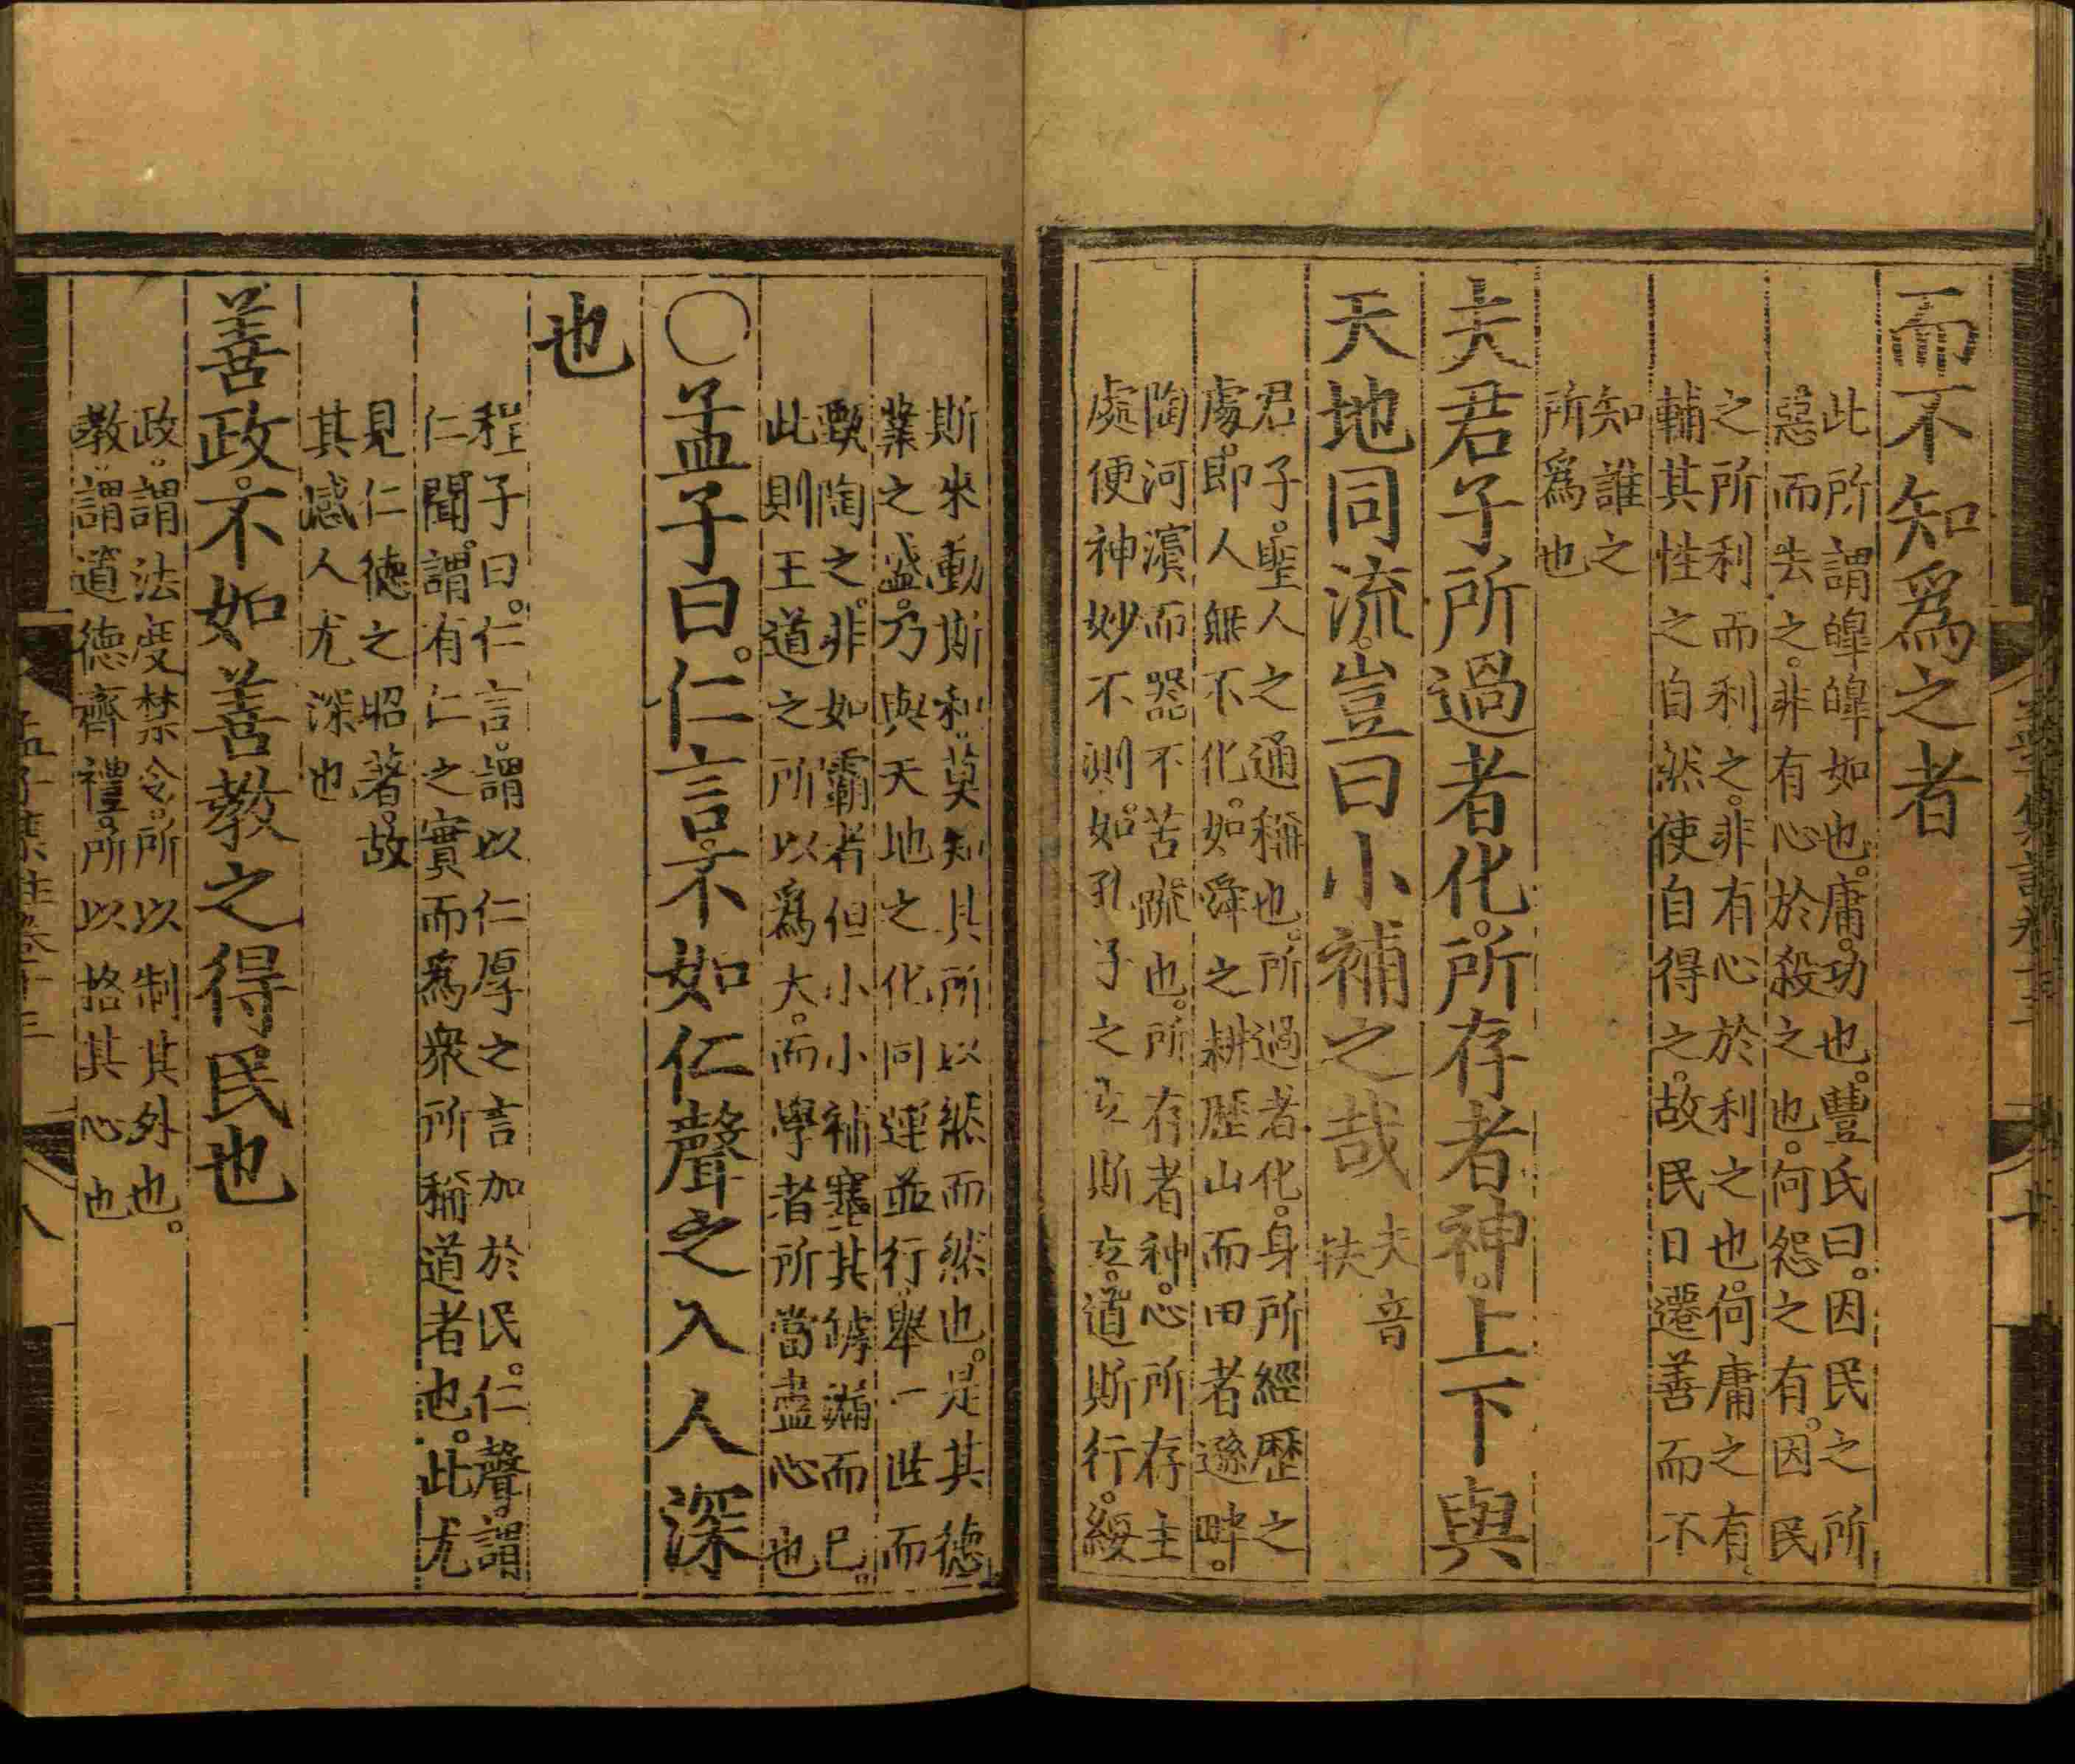 而不知爲之者
此所謂皥皥如也。庸。功也。豐氏曰。因民之所
惡而去之。非有心於殺之也。何怨之有。因民
之所利而利之。非有心於利之也。何庸之有
輔其性之自然使自得之。故民日遷善而不
知誰之
所爲也
夫君子所過者化。所存者神。上下與
天地同流。豈曰小補之哉
夫音
扶
君子。聖人之通稱也。所過者化。身所經歷之
處。即人無不化。如舜之耕歷山而田者遜畔。
陶河濱而器不苦窳也。所存者神。心所存主
處便神妙不測。如孔子之立斯立。道斯行。綏
斯來動斯和。莫知其所以然而然也。是其德
業之盛。乃與天地之化同運並行。舉一世而
甄陶之。非如霸者但小小補塞其罅漏而已。
此則王道之所以爲大。而學者所當盡心也
○孟子曰。仁言。不如仁聲之入人深
也
程子曰。仁言。謂以仁厚之言加於民。仁聲。謂
仁聞。謂有仁之實而爲衆所稱道者也。此尤
見仁德之昭著。故
其感人尤深也
善政。不如善教之得民也
政。謂法度禁令。所以制其外也。
教。謂道德齊禮。所以格其心也
孟子集註卷十三
八